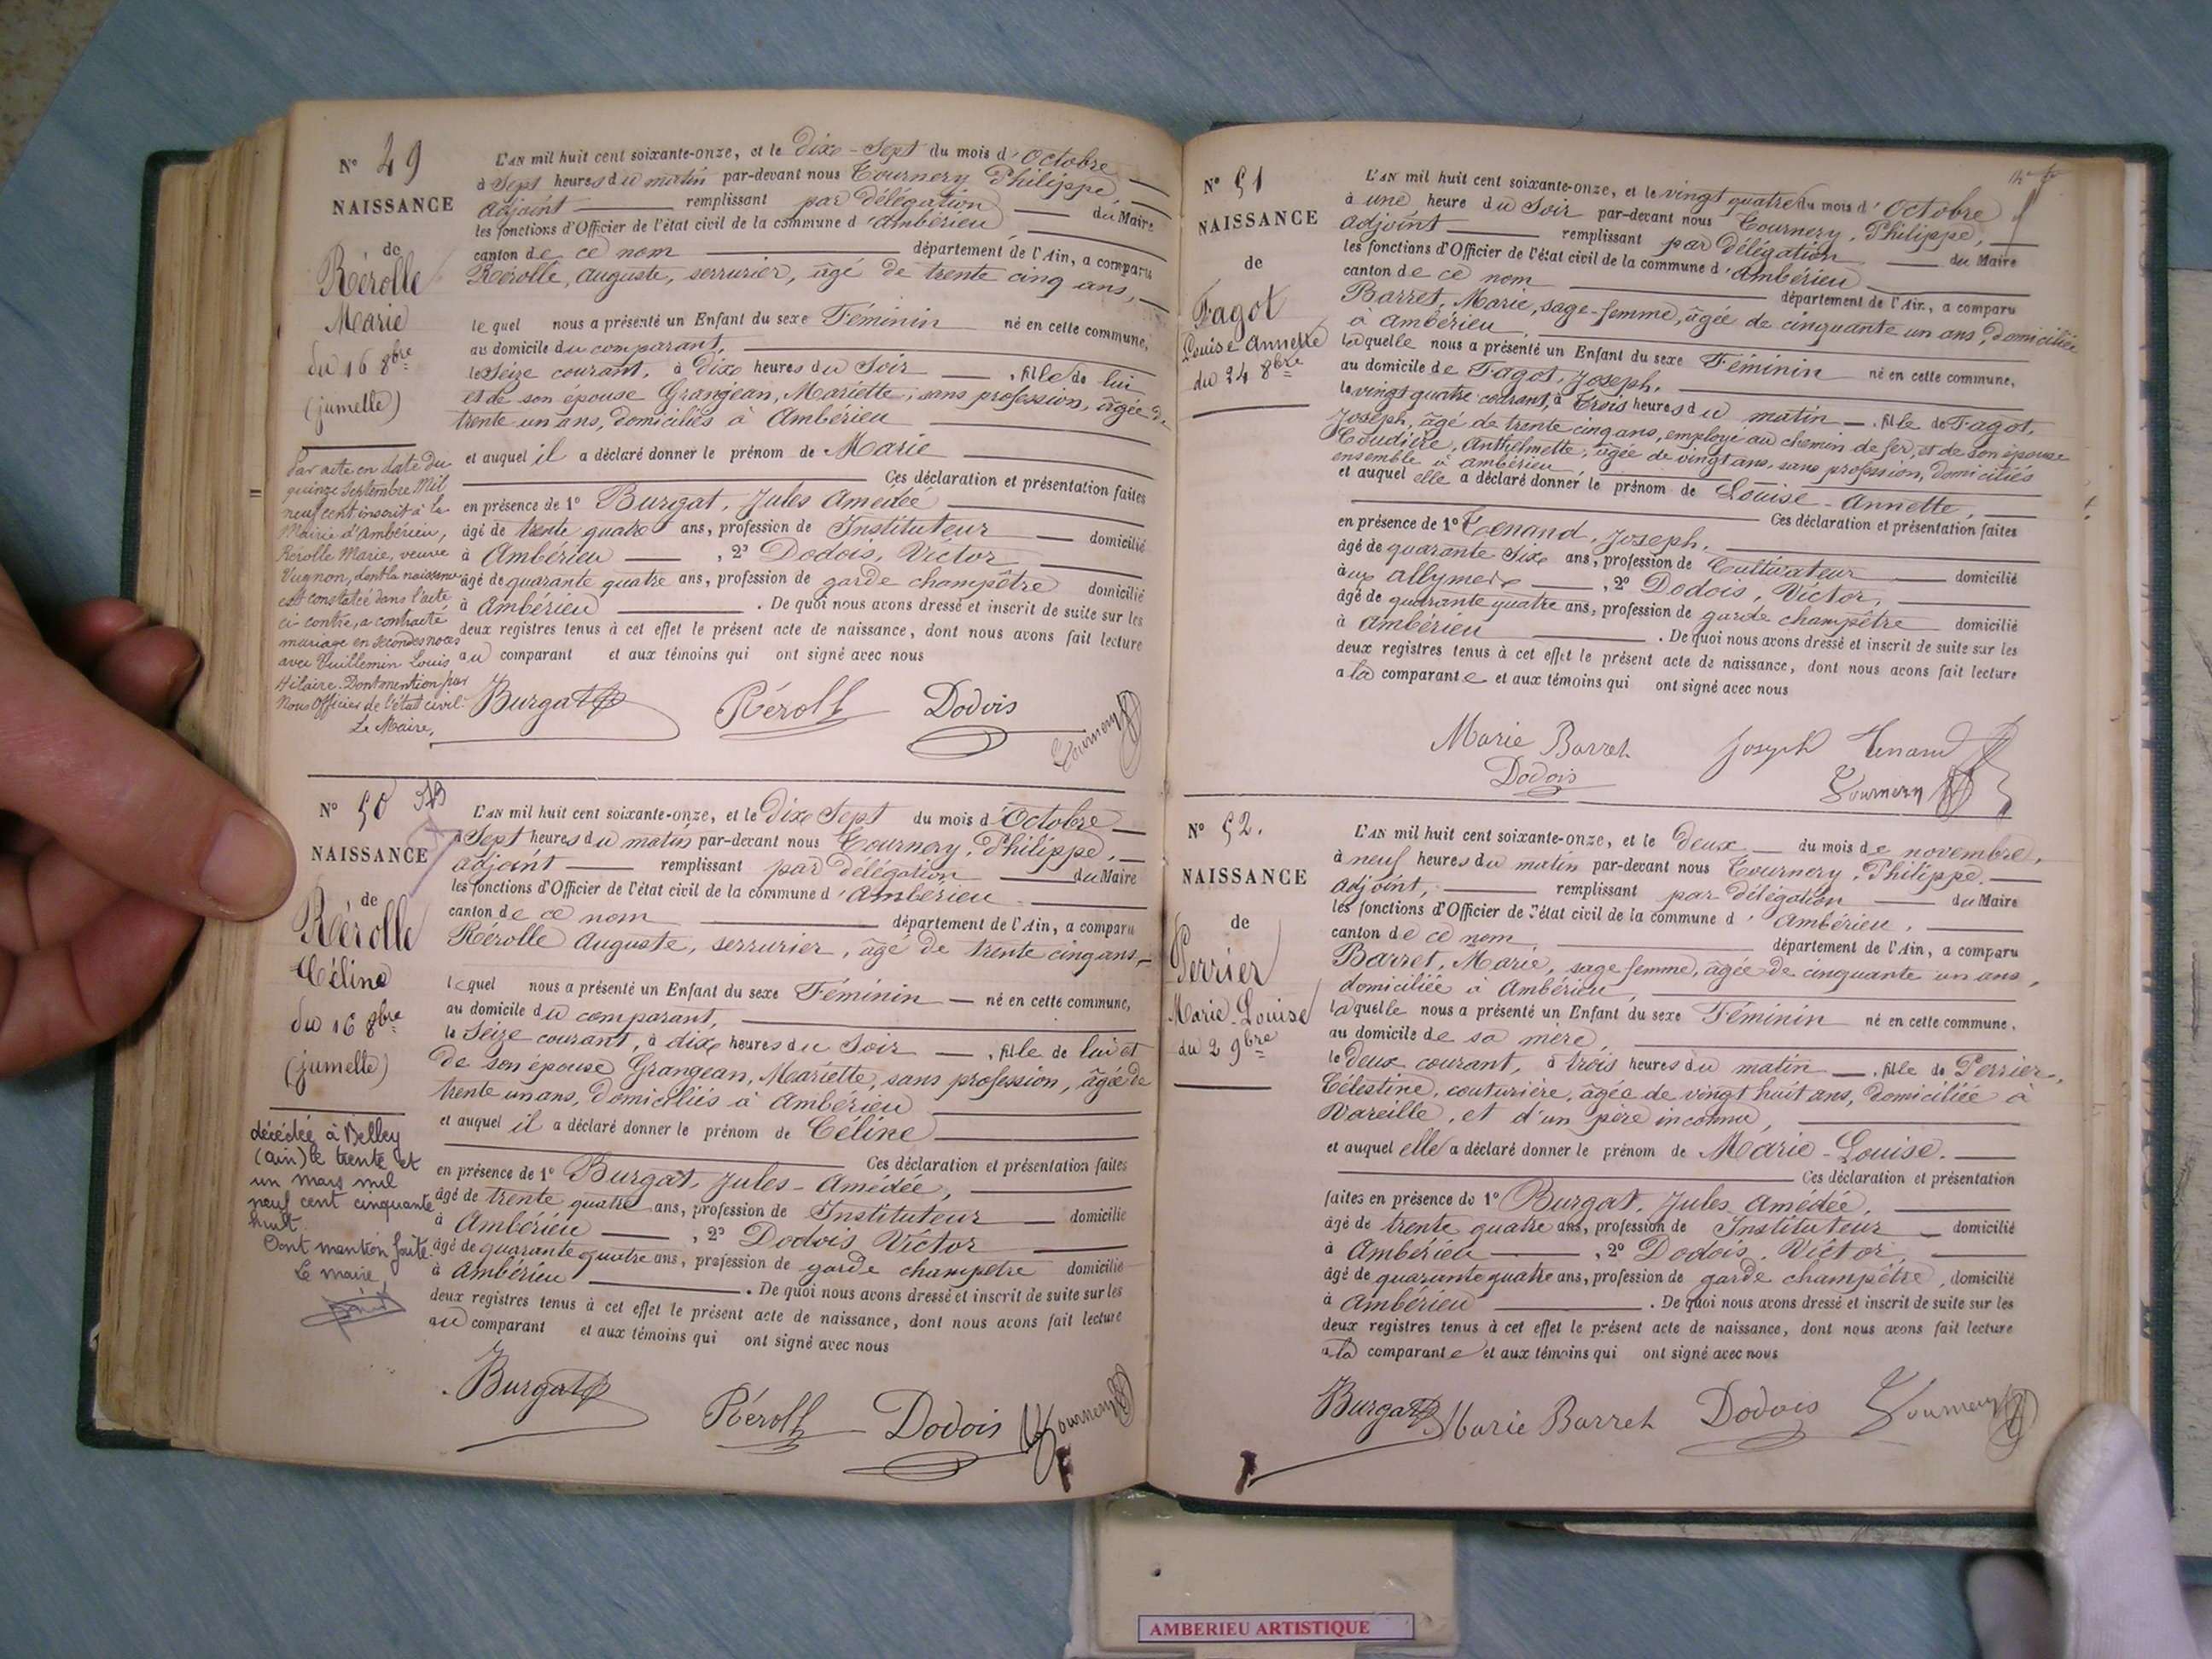 N° 49
NAISSANCE
de
Rérolle
Marie
du 16 8bre
(jumelle)
Par acte en date du
quinze Septembre Mil
neuf cent inscrit à la
Mairie d'Ambérieu,
Rérolle Marie, veuve
Vugnon, dont la naissance
est constatée dans l'acte
ci contre, a contracté
mariage en secondes noces
avec Vuillemin Louis
Hilaire. Dont mention par
Nous Officier de l'état civil.
Le Maire,
L'AN mil huit cent soixante-onze, et le dix-Sept du mois d'Octobre
à Sept heures du matin par-devant nous Tournery Philippe
adjoint remplissant par délégation du Maire
les fonctions d'Officier de l'état civil de la commune d'Ambérieu
canton de ce nom département de l'Ain, a comparu
Rérolle, Auguste, serrurier, âgé de trente cinq ans,
lequel nous a présenté un Enfant du sexe Féminin né en cette commune,
au domicile du comparant,
le Seize courant, à dix heures du Soir, fille de lui
et de son épouse Grangean, Mariette, sans profession, âgée de
trente un ans, domiciliés à Ambérieu
et auquel il a déclaré donner le prénom de Marie
Ces déclaration et présentation faites
en présence de 1° Burgat, Jules Amédée
âgé de trente quatre ans, profession de Instituteur domicilié
à Ambérieu, 2° Dodois, Victor
âgé de quarante quatre ans, profession de garde champêtre domicilié
à Ambérieu. De quoi nous avons dressé et inscrit de suite sur les
deux registres tenus à cet effet le présent acte de naissance, dont nous avons fait lecture
au comparant et aux témoins qui ont signé avec nous
Burgat Rérolle Dodois
Tournery
N° 50
NAISSANCE
de
Rérolle
Céline
du 16 8bre
(jumelle)
décédée à Belley
(ain) le trente et
un mars mil
neuf cent cinquante
huit.
Dont mention faite.
Le maire,
L'AN mil huit cent soixante-onze, et le Dix Sept du mois d'Octobre
à Sept heures du matin par-devant nous Tournery, Philippe,
adjoint remplissant par délégation du Maire
les fonctions d'Officier de l'état civil de la commune d'Ambérieu
canton de ce nom département de l'Ain, a comparu
Rérolle Auguste, serrurier, âgé de trente cinq ans,
lequel nous a présenté un Enfant du sexe Féminin né en cette commune,
au domicile du comparant,
le Seize courant, à dix heures du Soir, fille de lui et
de son épouse Grangean, Mariette, sans profession, âgée de
trente un ans, domiciliés à Ambérieu
et auquel il a déclaré donner le prénom de Céline
Ces déclaration et présentation faites
en présence de 1° Burgat, Jules-Amédée,
âgé de trente quatre ans, profession de Instituteur domicilié
à Ambérieu, 2° Dodois Victor
âgé de quarante quatre ans, profession de garde champêtre domicilié
à Ambérieu. De quoi nous avons dressé et inscrit de suite sur les
deux registres tenus à cet effet le présent acte de naissance, dont nous avons fait lecture
au comparant et aux témoins qui ont signé avec nous
Burgat
Rérolle Dodois Tournery
N° 51
NAISSANCE
de
Fagot
Louise Annette
du 24 8bre
L'AN mil huit cent soixante-onze, et le vingt quatre du mois d'Octobre
à une heure du Soir par-devant nous Tournery, Philippe,
adjoint remplissant par délégation du Maire
les fonctions d'Officier de l'état civil de la commune d'Ambérieu
canton de ce nom département de l'Ain, a comparu
Barret, Marie, sage-femme, âgée de cinquante un ans, domiciliée
à Ambérieu
laquelle nous a présenté un Enfant du sexe Féminin né en cette commune,
au domicile de Fagot, Joseph,
le vingt quatre courant, à trois heures du matin, fille de Fagot,
Joseph, âgé de trente cinq ans, employé au chemin de fer, et de son épouse
Coudière, Anthelmette, âgée de vingt ans, sans profession, domiciliés
ensemble à Ambérieu
et auquel elle a déclaré donner le prénom de Louise-Annette,
Ces déclaration et présentation faites
en présence de 1° Tenand, Joseph,
âgé de quarante Six ans, profession de Cultivateur domicilié
aux allymes, 2° Dodois, Victor,
âgé de quarante quatre ans, profession de garde champêtre domicilié
à Ambérieu. De quoi nous avons dressé et inscrit de suite sur les
deux registres tenus à cet effet le présent acte de naissance, dont nous avons fait lecture
à la comparante et aux témoins qui ont signé avec nous
Marie Barret Joseph Tenand
Dodois Tournery
N° 52.
NAISSANCE
de
Perrier
Marie-Louise
du 2 9bre
L'AN mil huit cent soixante-onze, et le deux du mois de novembre,
à neuf heures du matin par-devant nous Tournery, Philippe.
adjoint, remplissant par délégation du Maire
les fonctions d'Officier de l'état civil de la commune d'Ambérieu,
canton de ce nom, département de l'Ain, a comparu
Barret, Marie, sage femme, âgée de cinquante un ans,
domiciliée à Ambérieu,
laquelle nous a présenté un Enfant du sexe Féminin né en cette commune,
au domicile de sa mère,
le Deux courant, à trois heures du matin, fille de Perrier,
Célestine, couturière, âgée de vingt huit ans, domiciliée à
Vareille, et d'un père inconnu,
et auquel elle a déclaré donner le prénom de Marie-Louise.
Ces déclaration et présentation
faites en présence de 1° Burgat, Jules Amédée,
âgé de trente quatre ans, profession de Instituteur domicilié
à Ambérieu, 2° Dodois, Victor,
âgé de quarante quatre ans, profession de garde champêtre, domicilié
à Ambérieu. De quoi nous avons dressé et inscrit de suite sur les
deux registres tenus à cet effet le présent acte de naissance, dont nous avons fait lecture
à la comparante et aux témoins qui ont signé avec nous
Burgat Marie Barret Dodois Tournery
AMBERIEU ARTISTIQUE